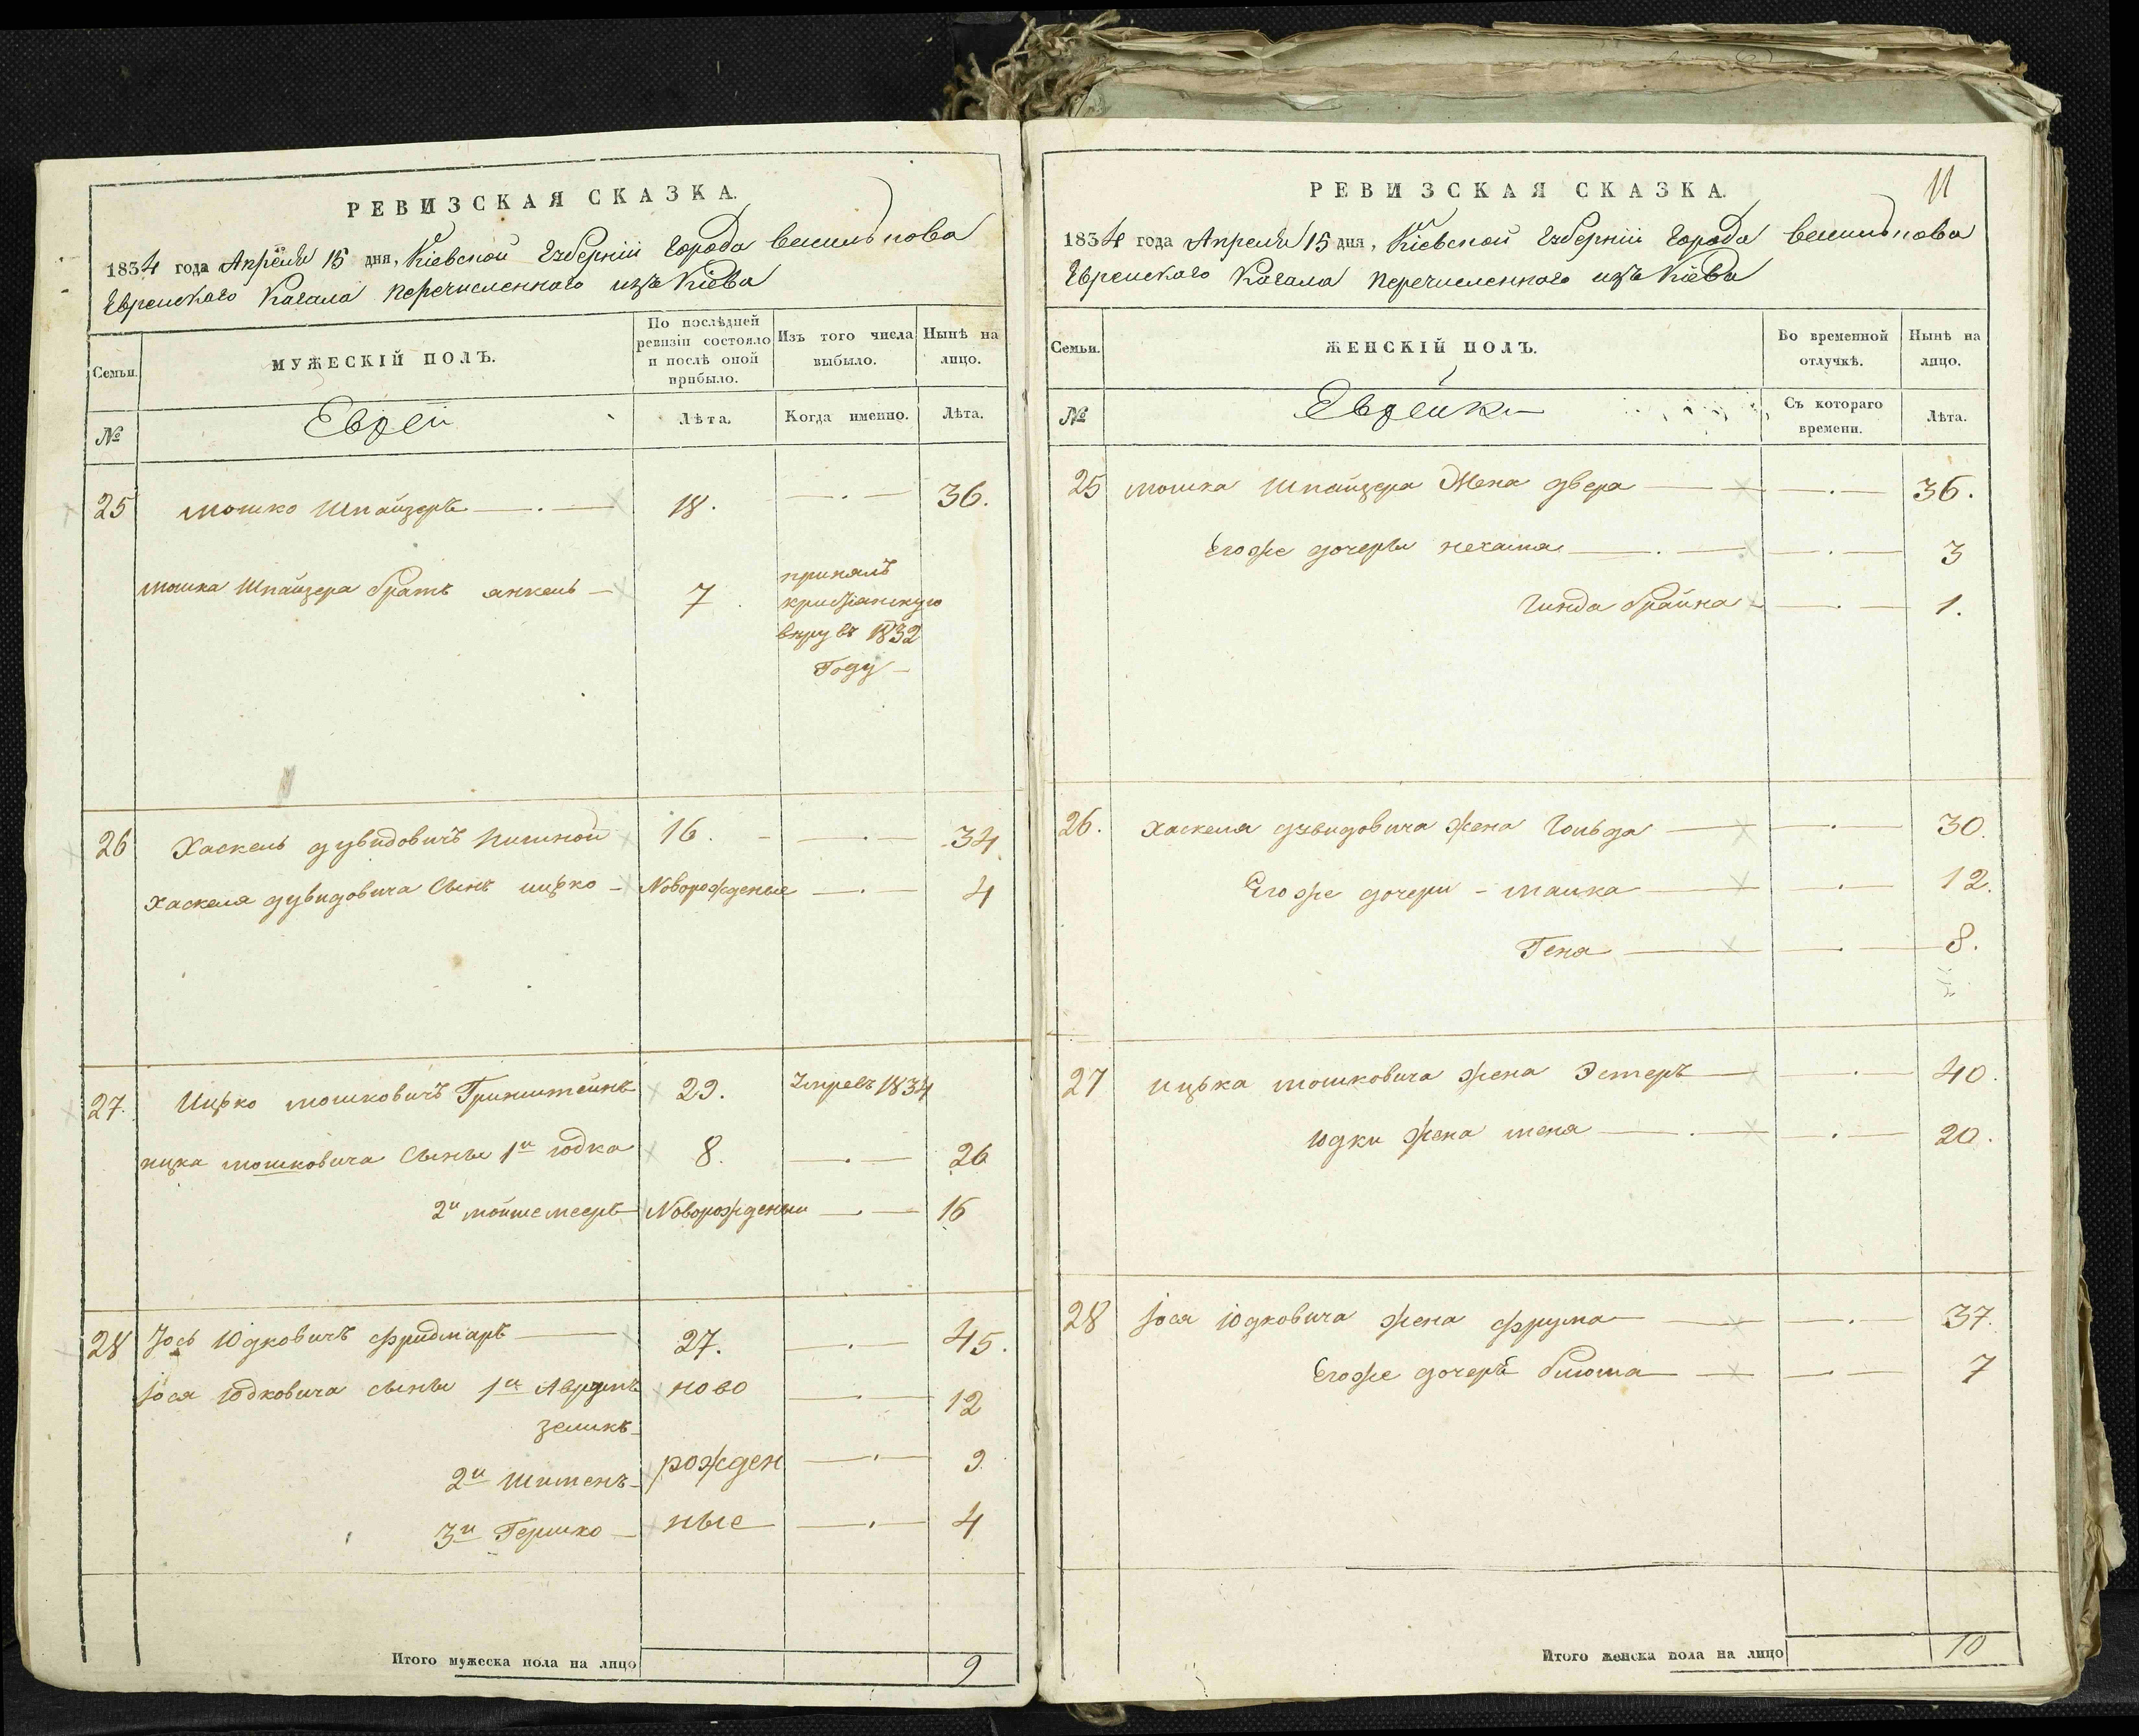 РЕВИЗСКАЯ СКАЗКА.
1834 года Апреля 15 дня, Кіевской Губерніи Города Василькова
Еврейскаго Кагала перечисленнаго изъ Кіева
Семьи.
МУЖЕСКІЙ ПОЛЪ.
По послѣдней ревизіи состояло и послѣ оной прибыло.
Изъ того числа выбыло.
Нынѣ на лицо.
№
Евреи
Лѣта.
Когда именно.
Лѣта.
25 мошко Шпайзеръ 18. 36.
мошка Шпайзера братъ янкель 7
принялъ
христіанскую
веру въ 1832
Году
26 Хаскель дувидовичъ 16. 34
хаскеля дувидовича Сынъ ицко Новорожденые 4
27. Ицко мошковичъ Гринштейнъ 29. Умре въ 1834
ицка мошковича Сыны 1й юдка 8. 26
2й мойше мееръ Новорожденыи 16
28 Іось Юдковичъ фридмаръ 27. 45.
іося юдковича сыны 1й Аврумъ ново 12
зеликъ
2й Шименъ рожден 9
3й Гершко ные 4
Итого мужеска пола на лицо 9
11
РЕВИЗСКАЯ СКАЗКА.
1834 года Апреля 15 дня, Кіевской Губерніи Города Василькова
Еврейскаго Кагала перечисленнаго изъ Кіева
Семьи.
ЖЕНСКІЙ ПОЛЪ.
Во временной отлучкѣ.
Нынѣ на лицо.
№
Еврейки
Съ котораго времени.
Лѣта.
25 мошка Шпайзера Жена двера 36.
Егоже дочеры нехама 3
Гинда брайна 1.
26. хаскеля дувидовича жена Гольда 30.
Егоже дочери - малка 12.
Гена 8.
27 ицька мошковича жена Эстеръ 40.
юдки жена шена 20.
28 іося юдковича жена фрума 37.
Егоже дочеръ блюма 7
Итого женска пола на лицо 10